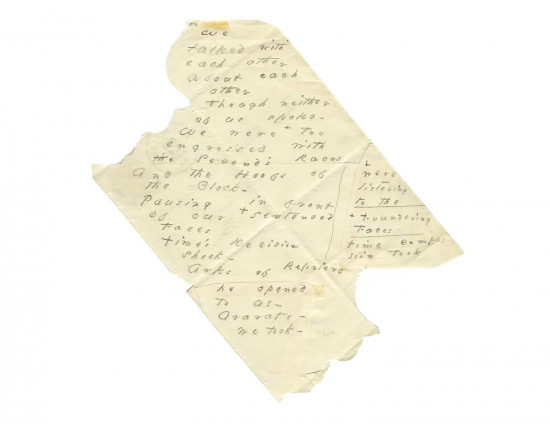 We
talked with
each other
about each
other
Though neither
of us spoke–
We were + too
engrossed with
the Second's Races
And the Hoofs of
the Clock–
Pausing in front
of our + Sentenced
Faces
Time's Decision
shook–
Arks of Reprieve
he opened
to us–
Ararats–
we took–
were
listening
to the
+ foundering
Faces
time compas
sion took